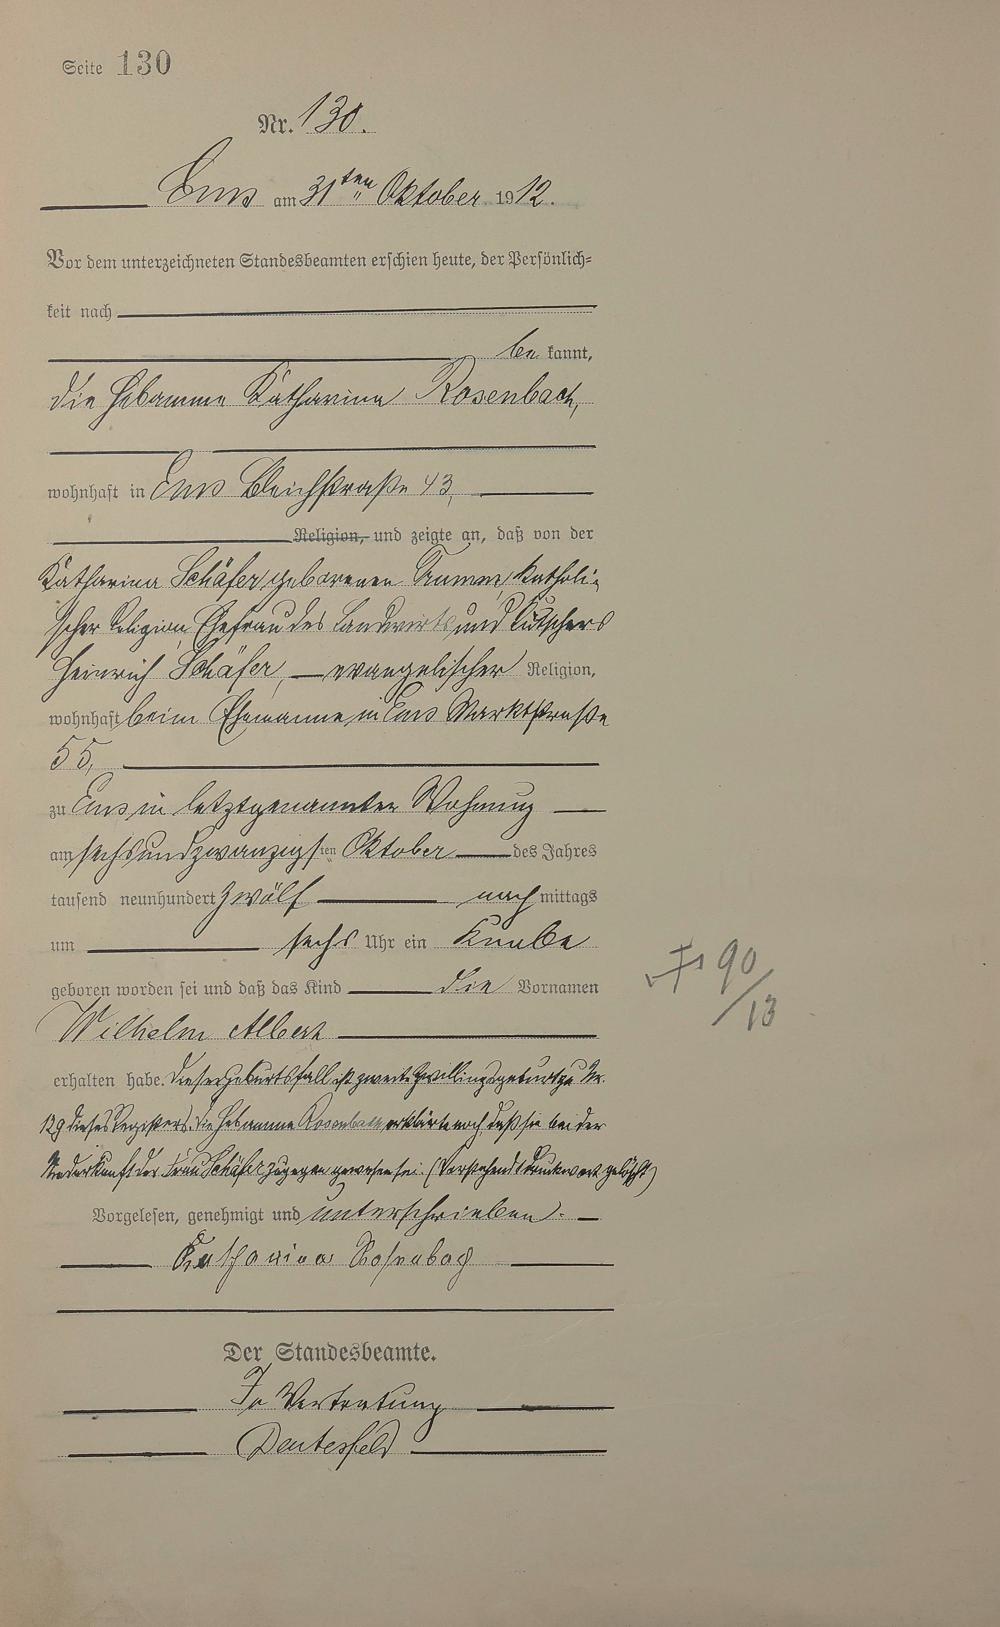 Seite 130
Nr. 130.
Ems am 31ten Oktober 1912.
Vor dem unterzeichneten Standesbeamten erschien heute, der Persönlich-
keit nach
be kannt,
die Hebamme Katharina Rosenbach,
wohnhaft in Ems Bleichstraße 43,
Religion, und zeigte an, daß von der
Katharina Schäfer geborenen Krumm, katholi-
scher Religion, Ehefrau des Landwirts und Kutschers
Heinrich Schäfer, evangelischer Religion,
wohnhaft beim Ehemanne in Ems Marktstraße
55,
zu Ems in letztgenannter Wohnung
am sechsundzwanzigsten Oktober des Jahres
tausend neunhundert zwölf nach mittags
um sechs Uhr ein Knabe
geboren worden sei und daß das Kind die Vornamen
Wilhelm Albert
erhalten habe. Dieser Geburtsfall ist zweite Zwillingsgeburt zu Nr.
129 dieses Registers. Die Hebamme Rosenbach erklärte noch, daß sie bei der
Niederkunft der Frau Schäfer zugegen gewesen sei. (Vorstehend 1 Druckwort gelöscht)
Vorgelesen, genehmigt und unterschrieben.
Katharina Rosenbach
Der Standesbeamte.
In Vertretung
90
/13